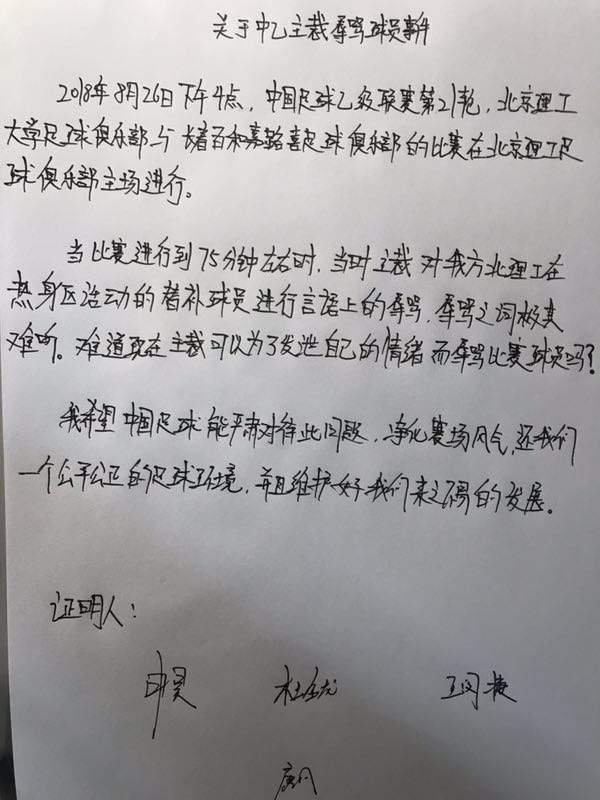 关于中乙主裁辱骂球员事件
2018年8月26日下午4点，中国足球乙级联赛第21轮，北京理工
大学足球俱乐部与长春百和嘉路喜足球俱乐部的比赛在北京理工足
球俱乐部主场进行。
当比赛进行到75分钟左右时，当时主裁对我方北理工在
热身区活动的替补球员进行言语上的辱骂，辱骂之词极其
难听。难道现在主裁可以为了发泄自己的情绪而辱骂比赛球员吗？
我希望中国足球能严肃对待此问题，净化赛场风气，还我们
一个公平公正的足球环境，并且维护好我们来之不易的发展。
证明人：